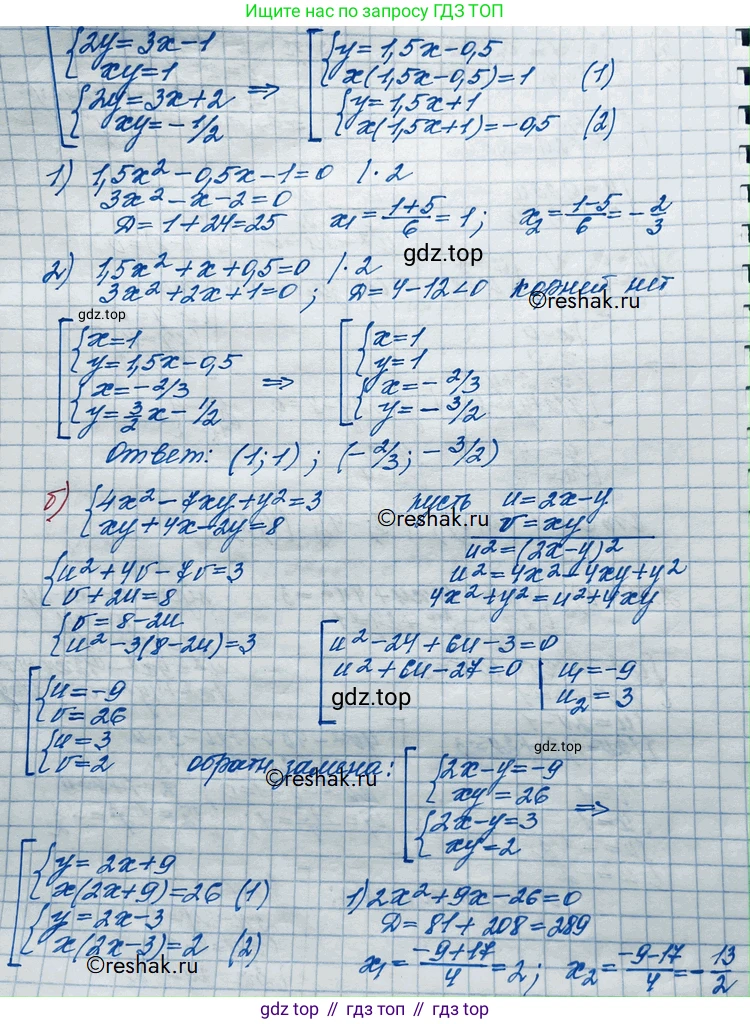 Ищите нас по запросу ГДЗ ТОП
{2y=3x-1
xy=1
{2y=3x+2
xy=-1/2
⇒
{y=1,5x-0,5
x(1,5x-0,5)=1 (1)
{y=1,5x+1
x(1,5x+1)=-0,5 (2)
1) 1,5x²-0,5x-1=0 /·2
3x²-x-2=0
D=1+24=25 x₁=(1+5)/6=1; x₂=(1-5)/6=-2/3
gdz.top
2) 1,5x²+x+0,5=0 /·2
3x²+2x+1=0; D=4-12<0 корней нет
©reshak.ru
gdz.top
[{x=1
y=1,5x-0,5
{x=-2/3
y=3/2x-1/2
⇒
[{x=1
y=1
{x=-2/3
y=-3/2
Ответ: (1;1); (-2/3; -3/2)
б) {4x²-7xy+y²=3
xy+4x-2y=8
©reshak.ru
пусть u=2x-y
v=xy
u²=(2x-y)²
u²=4x²-4xy+y²
4x²+y²=u²+4xy
{u²+4v-7v=3
v+2u=8
{v=8-2u
u²-3(8-2u)=3
[u²-24+6u-3=0
u²+6u-27=0 | u₁=-9
u₂=3
gdz.top
[{u=-9
v=26
{u=3
v=2
обратн. замена:
©reshak.ru
gdz.top
[{2x-y=-9
xy=26
{2x-y=3
xy=2
⇒
[{y=2x+9
x(2x+9)=26 (1)
{y=2x-3
x(2x-3)=2 (2)
©reshak.ru
1) 2x²+9x-26=0
D=81+208=289
x₁=(-9+17)/4=2; x₂=(-9-17)/4=-13/2
gdz.top // гдз топ // gdz.top